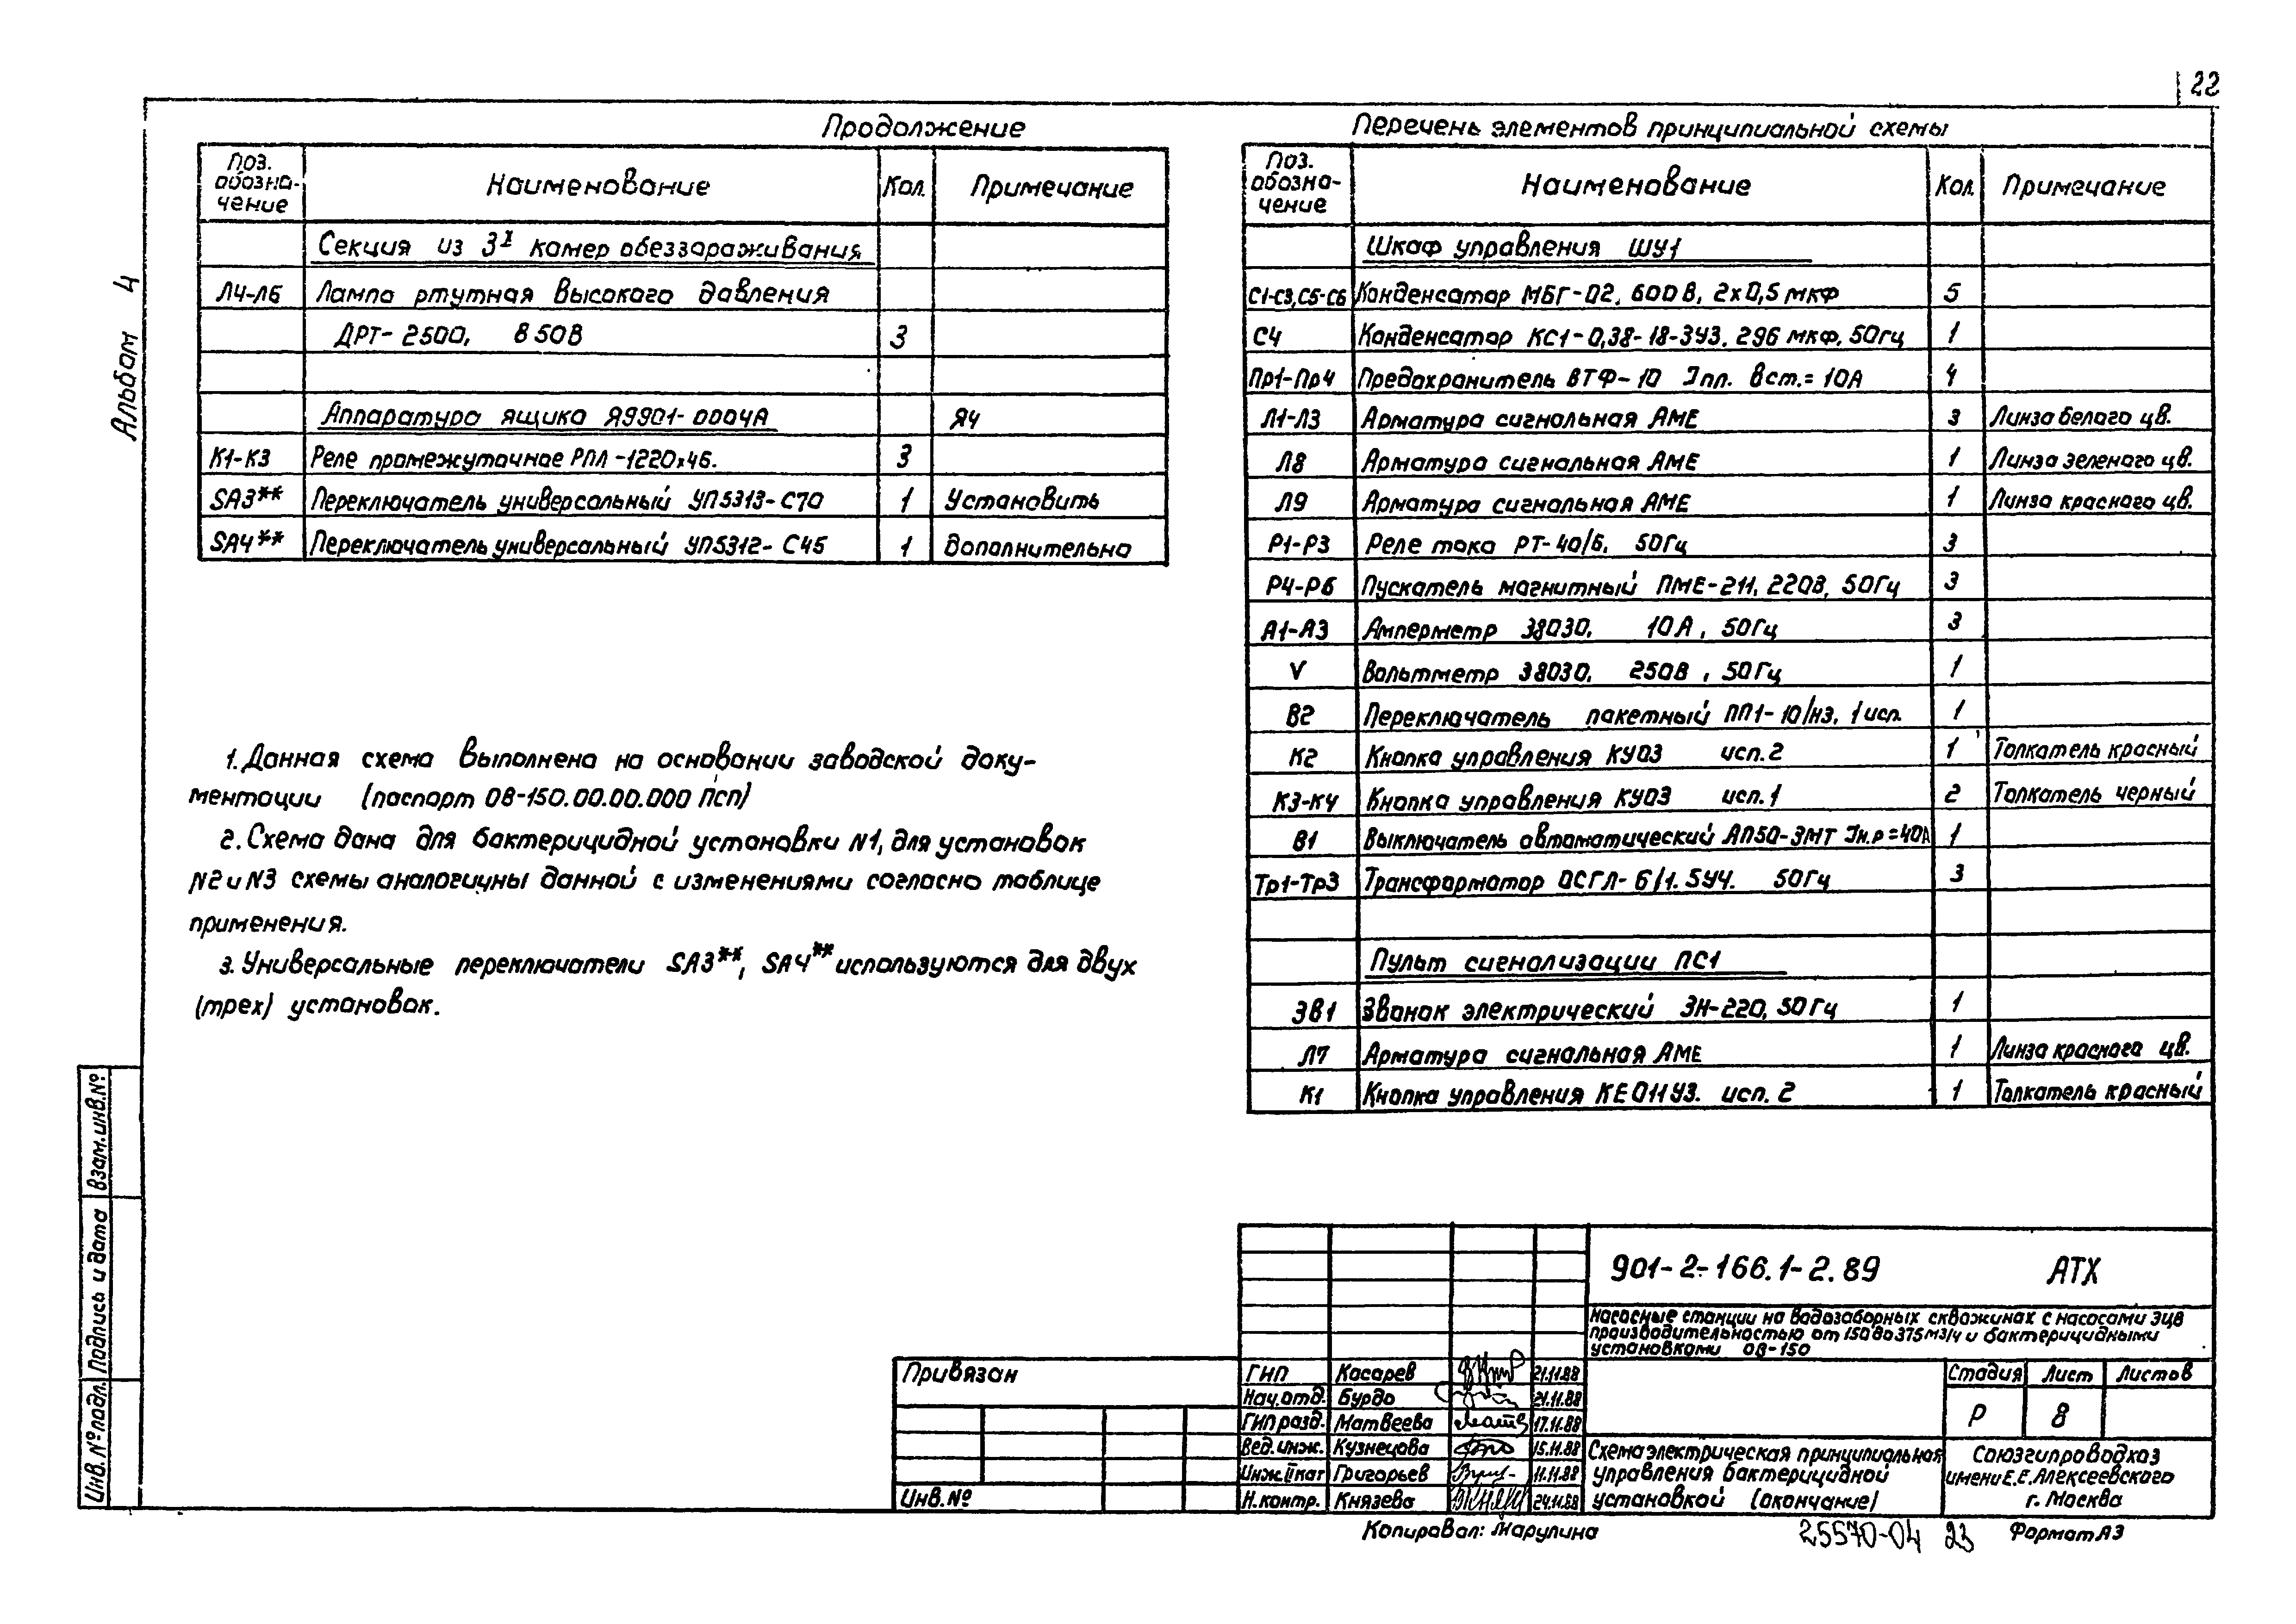 22
Альбом 4
Продолжение
Поз. обозна-чение | Наименование | Кол. | Примечание
Секция из 3х камер обеззараживания
Л4-Л6 | Лампа ртутная высокого давления
ДРТ-2500, 850В | 3
Аппаратура ящика Я9901-0004А | Я4
К1-К3 | Реле промежуточное РПЛ-1220х4б. | 3
SA3** | Переключатель универсальный УП5313-С70 | 1 | Установить
SA4** | Переключатель универсальный УП5312-С45 | 1 | дополнительно
1. Данная схема выполнена на основании заводской доку-
ментации (паспорт ОВ-150.00.00.000 ПСП)
2. Схема дана для бактерицидной установки N1, для установок
N2 и N3 схемы аналогичны данной с изменениями согласно таблице
применения.
3. Универсальные переключатели SA3**, SA4** используются для двух
(трех) установок.
Перечень элементов принципиальной схемы
Поз. обозна-чение | Наименование | Кол. | Примечание
Шкаф управления ШУ1
С1-С3, С5-С6 | Конденсатор МБГ-02, 600В, 2х0,5 мкф | 5
С4 | Конденсатор КС1-0,38-18-3У3. 296 мкф, 50гц | 1
Пр1-Пр4 | Предохранитель ВТФ-10 Iпл. вст.=10А | 4
Л1-Л3 | Арматура сигнальная АМЕ | 3 | Линза белого цв.
Л8 | Арматура сигнальная АМЕ | 1 | Линза зеленого цв.
Л9 | Арматура сигнальная АМЕ | 1 | Линза красного цв.
Р1-Р3 | Реле тока РТ-40/6, 50Гц | 3
Р4-Р6 | Пускатель магнитный ПМЕ-211, 220В, 50Гц | 3
А1-А3 | Амперметр Э8030, 10А, 50Гц | 3
V | Вольтметр Э8030, 250В, 50Гц | 1
В2 | Переключатель пакетный ПП1-10/нз, 1 исп. | 1
К2 | Кнопка управления КУ03 исп.2 | 1 | Толкатель красный
К3-К4 | Кнопка управления КУ03 исп.1 | 2 | Толкатель черный
В1 | Выключатель автоматический АП50-3МТ Iн.р=40А | 1
Тр1-Тр3 | Трансформатор ОСГЛ-6/1.5У4. 50Гц | 3
Пульт сигнализации ПС1
ЗВ1 | Звонок электрический ЗН-220, 50Гц | 1
Л7 | Арматура сигнальная АМЕ | 1 | Линза красного цв.
К1 | Кнопка управления КЕ011У3. исп. 2 | 1 | Толкатель красный
Взам.инв.№
Подпись и дата
Инв.№подл.
Привязан
Инв.№
901-2-166.1-2.89 АТХ
Насосные станции на водозаборных скважинах с насосами ЭЦВ
производительностью от 150 до 375 м3/ч и бактерицидными
установками ОВ-150
ГИП | Косарев | 21.11.88
Нач.отд. | Бурдо | 21.11.88
ГИП разд. | Матвеева | 17.11.88
Вед.инж. | Кузнецова | 15.11.88
Инж.II кат | Григорьев | 11.11.88
Н.контр. | Князева | 24.11.88
Стадия | Лист | Листов
Р | 8
Схема электрическая принципиальная
управления бактерицидной
установкой (окончание)
Союзгипроводхоз
имени Е.Е.Алексеевского
г. Москва
Копировал: Марулина
25570-04 23
Формат А3